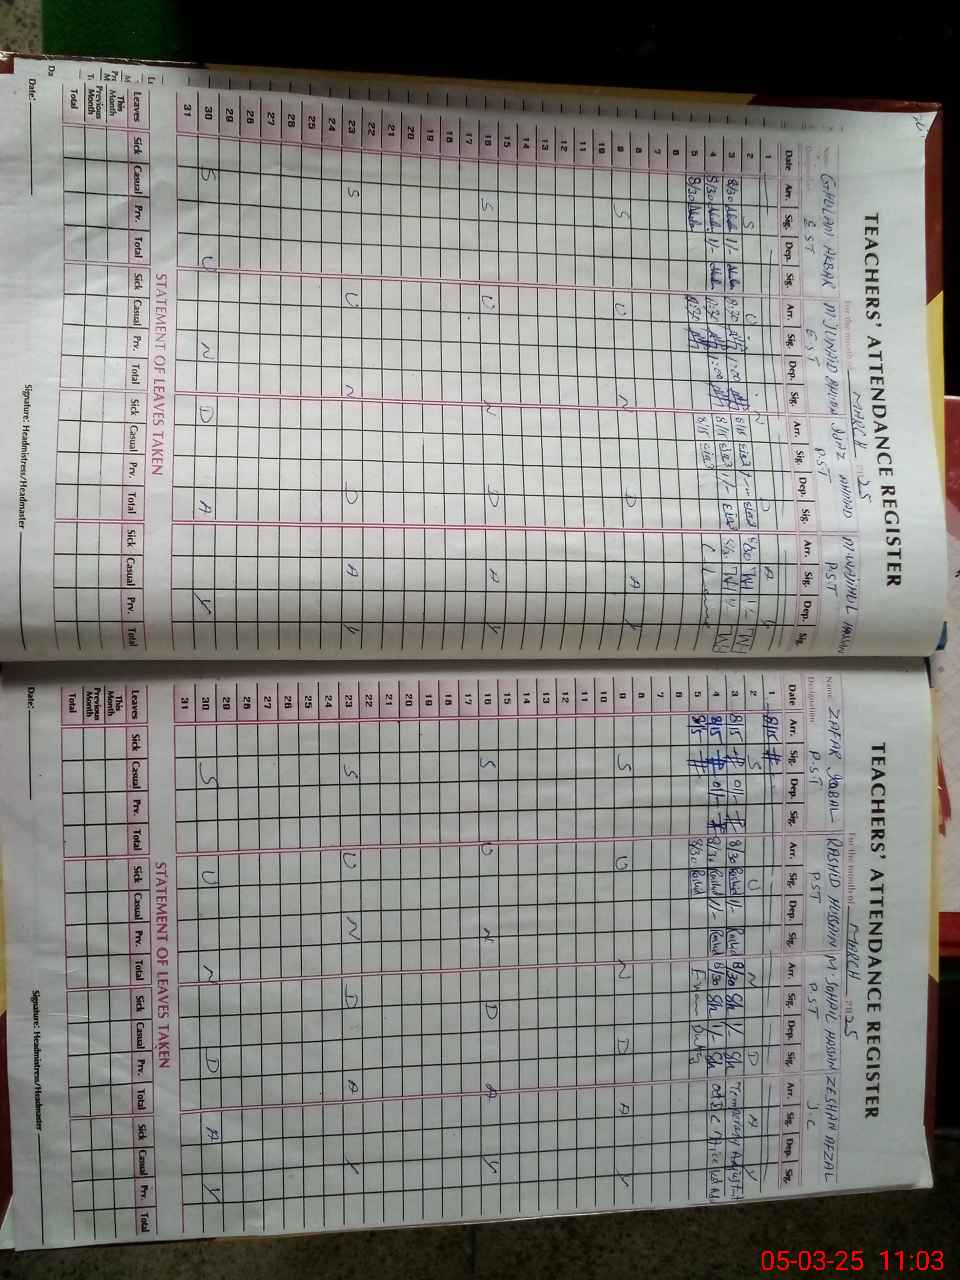 TEACHERS' ATTENDANCE REGISTER
For the month of MARCH 2025
GHULAM AKBAR M. JUNAID AHIAN IJAZ AHMAD M. WAJIHUL HASSAN
EST EST PST PST
Date Arr. Sig. Dep. Sig. Arr. Sig. Dep. Sig. Arr. Sig. Dep. Sig. Arr. Sig. Dep. Sig
1
2 S U N D A Y
3 8/30 1/- 8:30 1:00 8/15 1/- 8/30 1/-
4 8/30 1/- 8:30 1:00 8/15 1/-
5 8/30 8:30 8/15 C Leave
6
7
8
9 S U N D A Y
10
11
12
13
14
15
16 S U N D A Y
17
18
19
20
21
22
23 S U N D A Y
24
25
26
27
28
29
30 S U N D A Y
31
STATEMENT OF LEAVES TAKEN
Leaves Sick Casual Prv. Total Sick Casual Prv. Total Sick Casual Prv. Total Sick Casual Prv. Total
This Month
Previous Month
Total
Date: Signature: Headmistress/Headmaster
TEACHERS' ATTENDANCE REGISTER
For the month of MARCH 2025
Name ZAFAR IQBAL RASHID HUSSAIN M. SOHAIL HASSAN ZESHAN AFZAL
Designation P.ST P.ST P.ST J.C
Date Arr. Sig. Dep. Sig. Arr. Sig. Dep. Sig. Arr. Sig. Dep. Sig. Arr. Sig. Dep. Sig.
1 8/15
2 S U N D A Y
3 8/15 01/- 8/30 Rashid 1/- Rashid 8/30 Sh 1/- Sh Temperary
4 8/15 01/- 8/30 Rashid 1/- Rashid 8/30 Sh 1/- Sh
5 8/15 8/30 Rashid Exam Duty
6
7
8
9 S U N D A Y
10
11
12
13
14
15
16 S U N D A Y
17
18
19
20
21
22
23 S U N D A Y
24
25
26
27
28
29
30 S U N D A Y
31
STATEMENT OF LEAVES TAKEN
Leaves Sick Casual Prv. Total Sick Casual Prv. Total Sick Casual Prv. Total Sick Casual Prv. Total
This Month
Previous Month
Total
Date: Signature: Headmistress/Headmaster
05-03-25 11:03